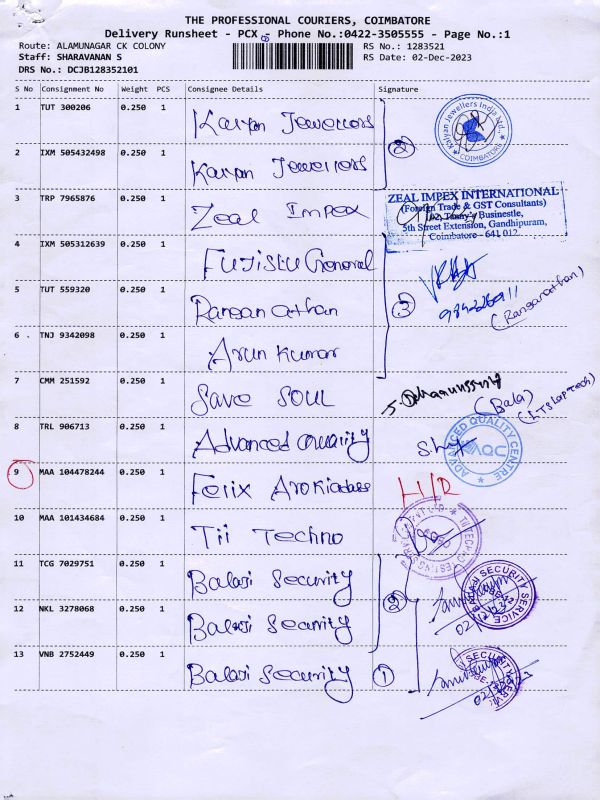 THE PROFESSIONAL COURIERS, COIMBATORE
Delivery Runsheet - PCX - Phone No.:0422-3505555 - Page No.:1
Route: ALAMUNAGAR CK COLONY RS No.: 1283521
Staff: SHARAVANAN S RS Date: 02-Dec-2023
DRS No.: DCJB128352101
S No Consignment No Weight PCS Consignee Details Signature
1 TUT 300206 0.250 1 Kalyan Jewellors
Kalyan Jewellers India Ltd., COIMBATORE
2 IXM 505432498 0.250 1 Kalyan Jewellors
2
3 TRP 7965876 0.250 1 Zeal Impex
ZEAL IMPEX INTERNATIONAL
(Foreign Trade & GST Consultants)
Businestle,
5th Street Extension, Gandhipuram,
Coimbatore - 641 012
4 IXM 505312639 0.250 1 Fujistu General
5 TUT 559320 0.250 1 Rangan athan
3
(Ranganathan)
6 TNJ 9342098 0.250 1 Arun Kumar
7 CMM 251592 0.250 1 Save SOUL
(Bala)
8 TRL 906713 0.250 1 Advanced Quality
ADVANCED QUALITY CENTRE AQC
9 MAA 104478244 0.250 1 Felix Arokiadass
10 MAA 101434684 0.250 1 Tii Techno
11 TCG 7029751 0.250 1 Balaji Security
2
BALAJI SECURITY SERVICE
12 NKL 3278068 0.250 1 Balaji Security
02/12/23
13 VNB 2752449 0.250 1 Balaji Security
1
SECURITY